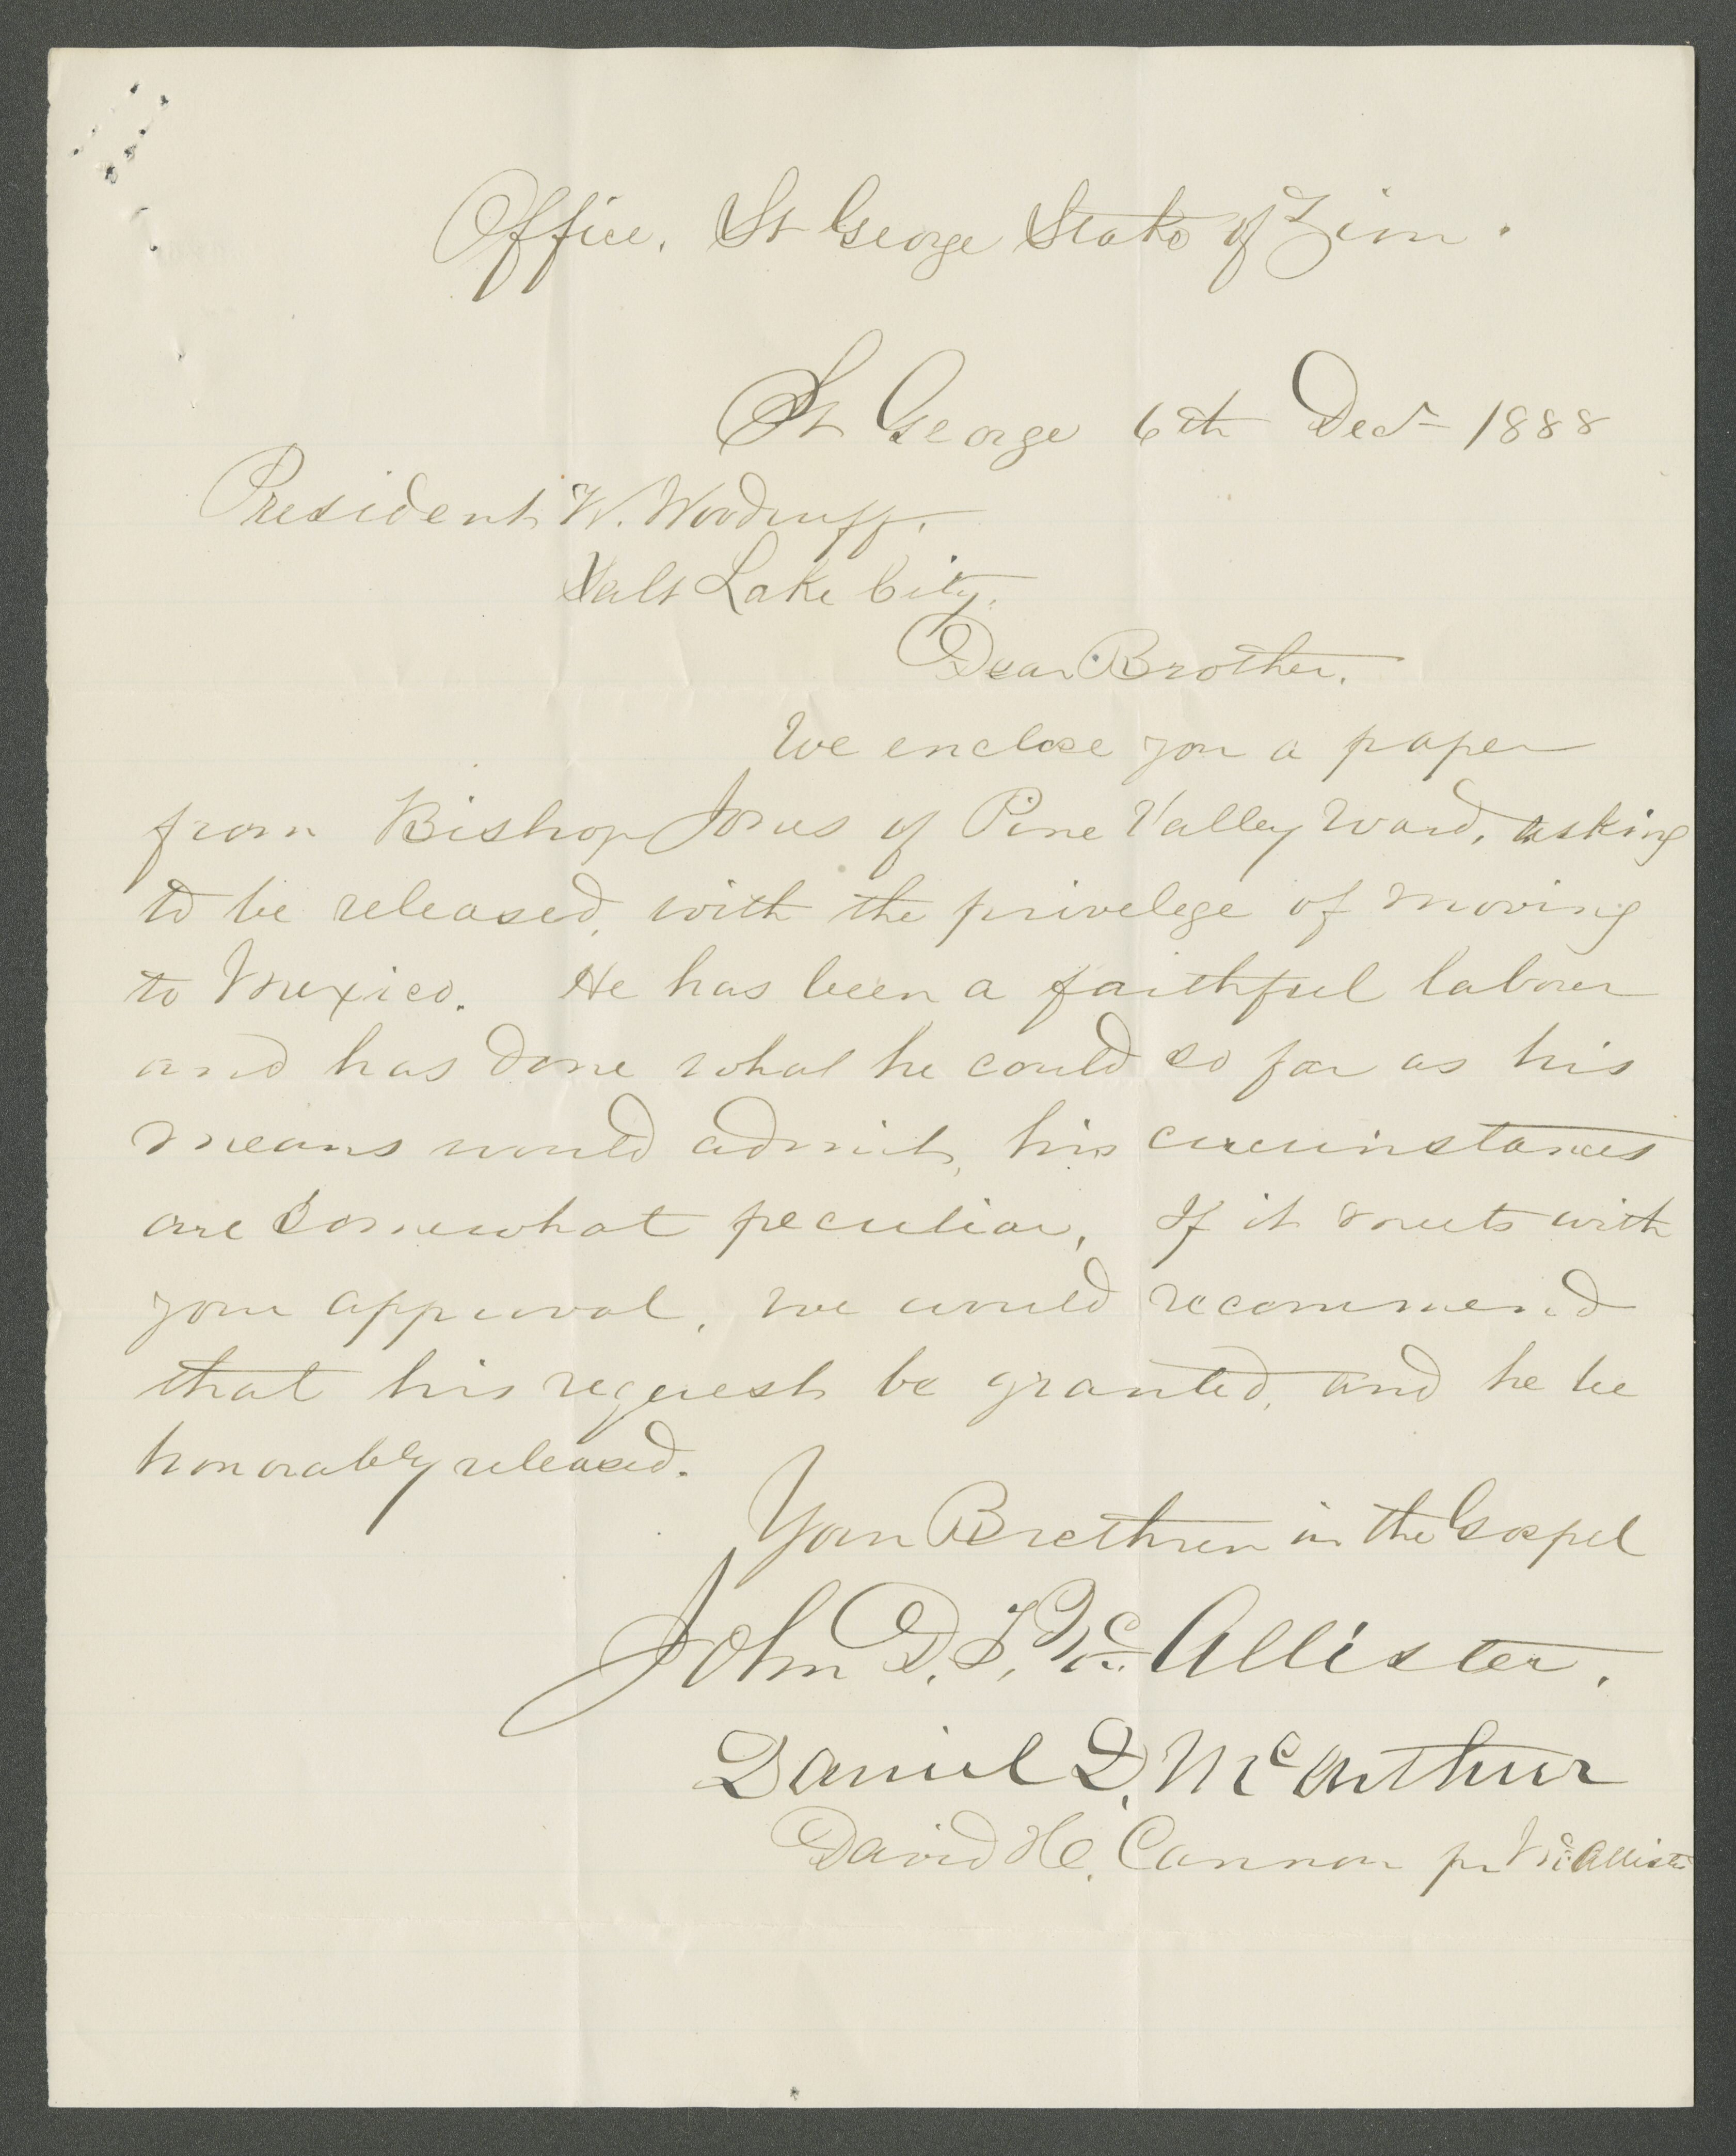 Office, St George Stake of Zion.
St George 6th Decr 1888
President W. Woodruff.
Salt Lake City.
Dear Brother.
We enclose you a paper
from Bishop Jones of Pine Valley Ward, asking
to be released, with the privelege of moving
to Mexico. He has been a faithful laborer
and has done what he could so far as his
means would admit, his circumstances
are somewhat peculiar, If it meets with
your approval, we would recommend
that his request be granted, and he be
honorably released.
Your Brethren in the Gospel
John D. T. McAllister.
Daniel D. McArthur
David H. Cannon pr McAllister